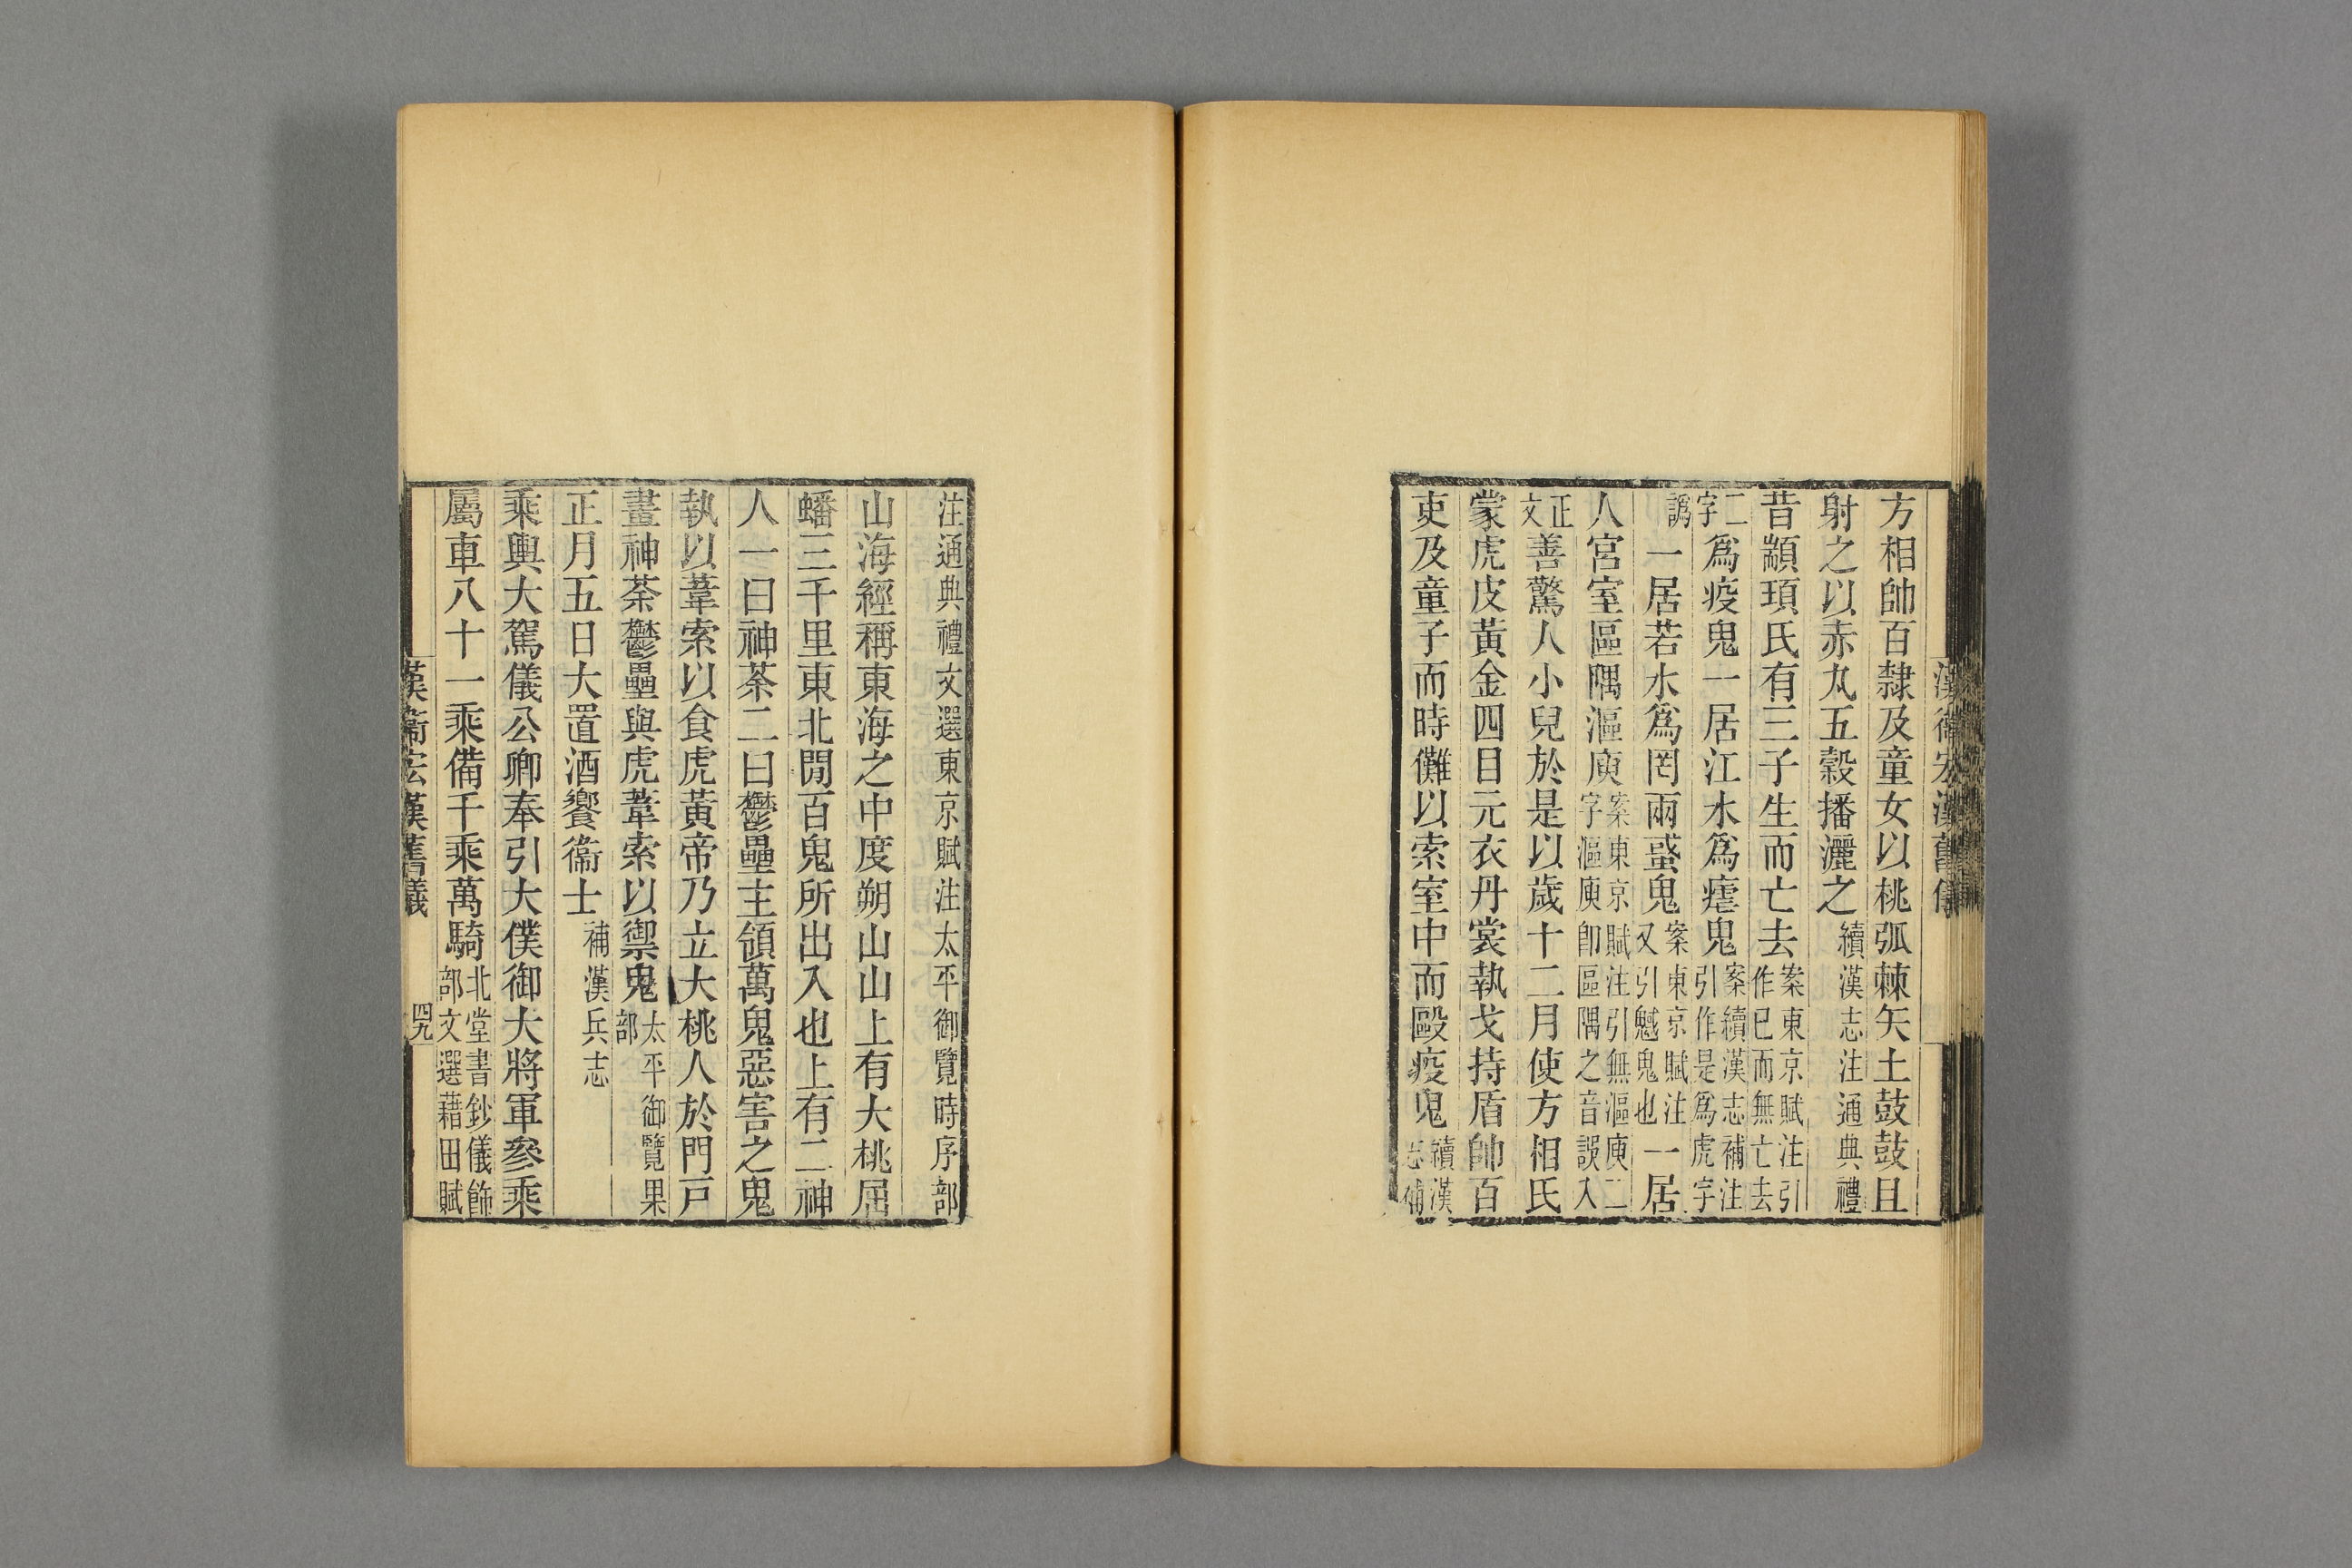 漢衞宏漢舊儀
方相帥百隸及童女以桃弧棘矢土鼓鼓且
射之以赤丸五穀播灑之續漢志注通典禮
昔顓頊氏有三子生而亡去案東京賦注引作已而無亡去
二字爲疫鬼一居江水爲瘧鬼案續漢志補注引作是爲虎字
譌一居若水爲罔兩蜮鬼案東京賦注又引魊鬼也一居
人宮室區隅漚庾案東京賦注引無漚庾二字漚庾卽區隅之音誤入
正文善驚人小兒於是以歲十二月使方相氏
蒙虎皮黃金四目元衣丹裳執戈持盾帥百
吏及童子而時儺以索室中而毆疫鬼續漢志補
注通典禮文選東京賦注太平御覽時序部
山海經稱東海之中度朔山山上有大桃屈
蟠三千里東北閒百鬼所出入也上有二神
人一曰神荼二曰鬱壘主領萬鬼惡害之鬼
執以葦索以食虎黃帝乃立大桃人於門戸
畫神荼鬱壘與虎葦索以禦鬼太平御覽果部
正月五日大置酒饗衞士補漢兵志
乘輿大駕儀公卿奉引大僕御大將軍參乘
屬車八十一乘備千乘萬騎北堂書鈔儀飾部文選藉田賦
漢衞宏漢舊儀 四九